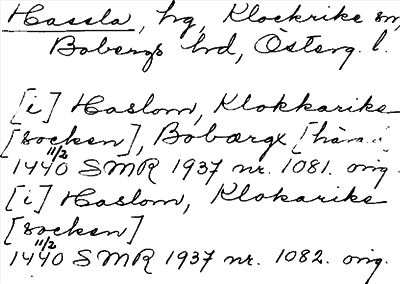 Hassla, hg, Klockrike sn,
Bobergs hd, Österg. l.
[i] Haslom, Klokkarike
[socken], Bobærgx [här..
11/2
1440 SMR 1937 nr. 1081. orig.
[i] Haslom, Klokarike
[socken]
11/2
1440 SMR 1937 nr. 1082. orig.